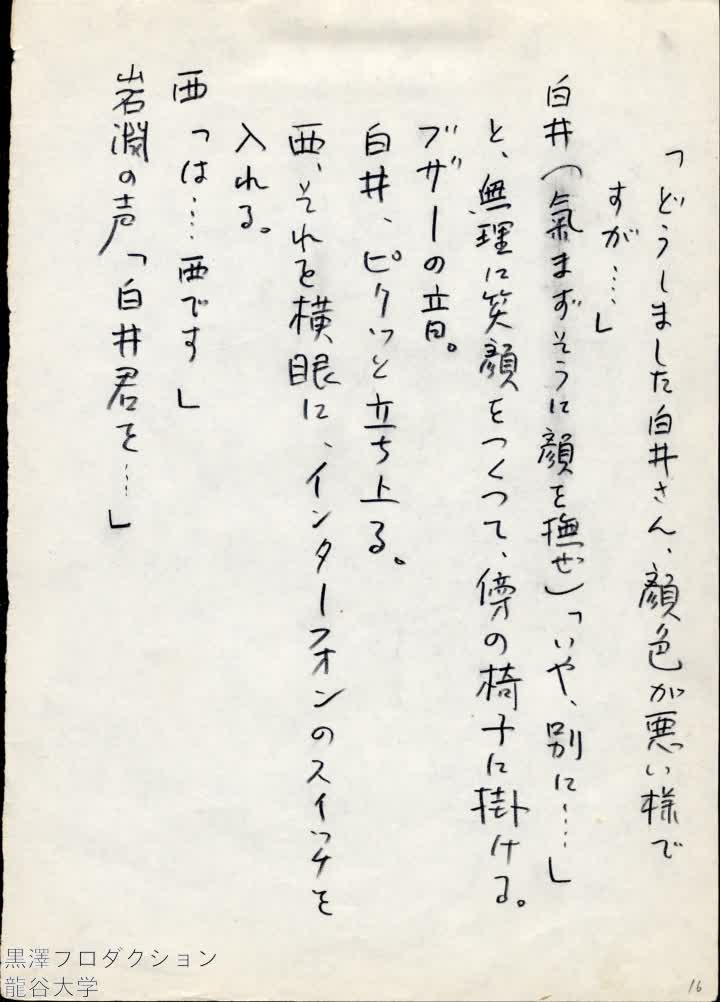 「どうしました白井さん、顔色が悪い様で
すが‥‥」
白井(氣まずそうに顔を撫ぜ)「いや、別に‥‥」
と、無理に笑顔をつくって、傍の椅子に掛ける。
ブザーの音。
白井、ピクッと立ち上る。
西、それを横眼に、インターフォンのスイッチを
入れる。
西「は‥‥西です」
岩淵の声「白井君を‥‥」
黒澤プロダクション
龍谷大学
16